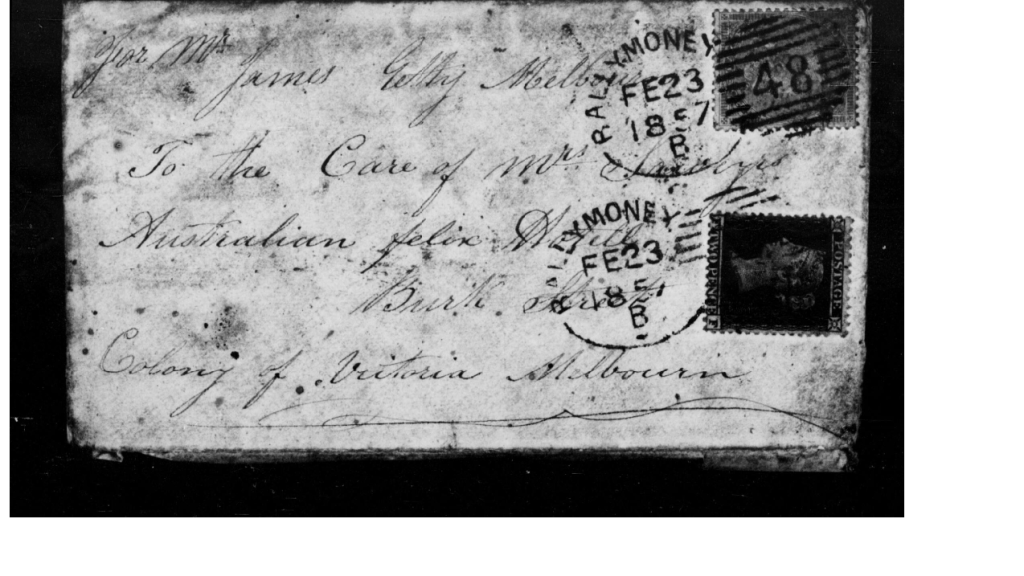 For Mr
James Getty Melbourn
To the Care of Mrs
Australian felix
Burk Street
Colony of Victoria Melbourn
BALLYMONEY
FE23
1857
B
48
BALLYMONEY
FE23
185
B
POSTAGE
TWO PENCE